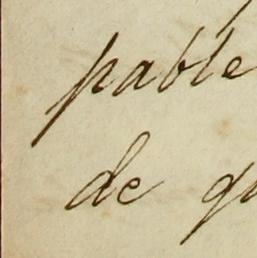 pable
de qu